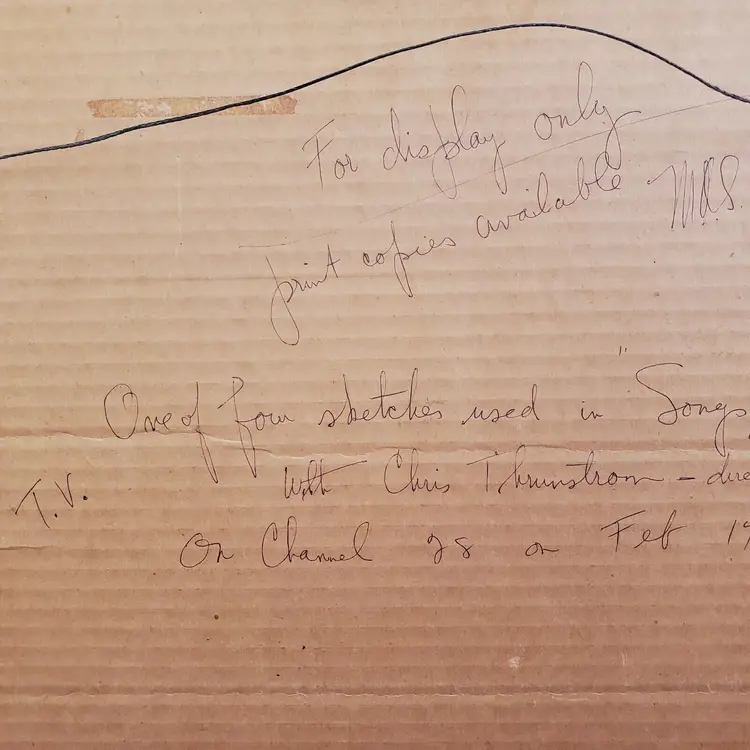 For display only
print copies available
One of four sketches used in "Songs
T.V. With Chris Thrunstrom - dire
On Channel 28 on Feb 19